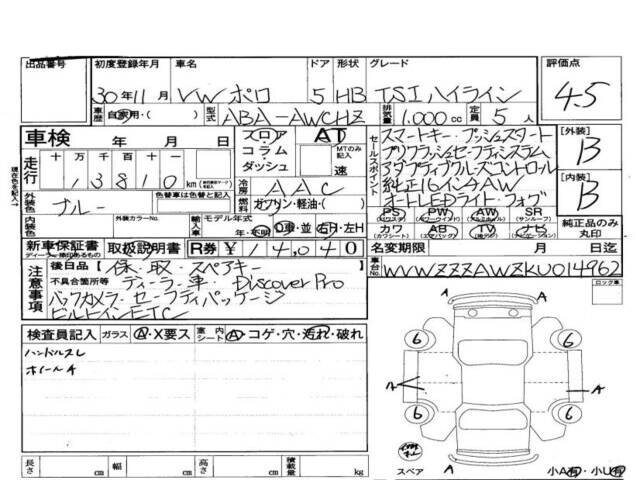 出品番号 初度登録年月 車名 ドア 形状 グレード 評価点
30年11月 VW ポロ 5 HB TSI ハイライン 4.5
車歴 自家用・( ) 型式 ABA-AWCHZ 排気量 1.000cc 定員 5人
車検 年 月 日
走行 十万 万 千 百 十 一
13810 km
フロア コラム ダッシュ
AT MTのみ記入 速
冷房 AAC
燃料 ガソリン・軽油・( )
セールスポイント
スマートキー・プッシュスタート
プリクラッシュセーフティシステム
アダプティブクルーズコントロール
純正16インチAW
オートLEDライト・フォグ
PS パワステ PW パワーウィンド AW アルミホイル SR サンルーフ
カワ カワシート AB エアバック TV テレビ ナビ ナビゲーション
[外装] B
[内装] B
純正品のみ丸印
外装色 ブルー 色替車は色替と記入
内装色 外装カラーNo. 輸入車 モデル年式 年・不明 D車・並 右H・左H
新車保証書 取扱説明書 R券 ¥14,040
ディーラー捺印あるもの
名変期限 月 日迄
車台No. WVWZZZAWZKU014962
注意事項 後日品 保・取・スペアキー
不具合箇所等 ディーラー車・Discover Pro
バックカメラ・セーフティパッケージ
ビルトインETC
ロック車
検査員記入 ガラス A・X要ス 室内シート A・コゲ・穴・汚れ・破れ
ハンドルスレ
ホイールA
A A
6 6
A A
6 6
A A
スペア
小A有・小U有
長さ cm 幅 cm 高さ cm 積載量 kg